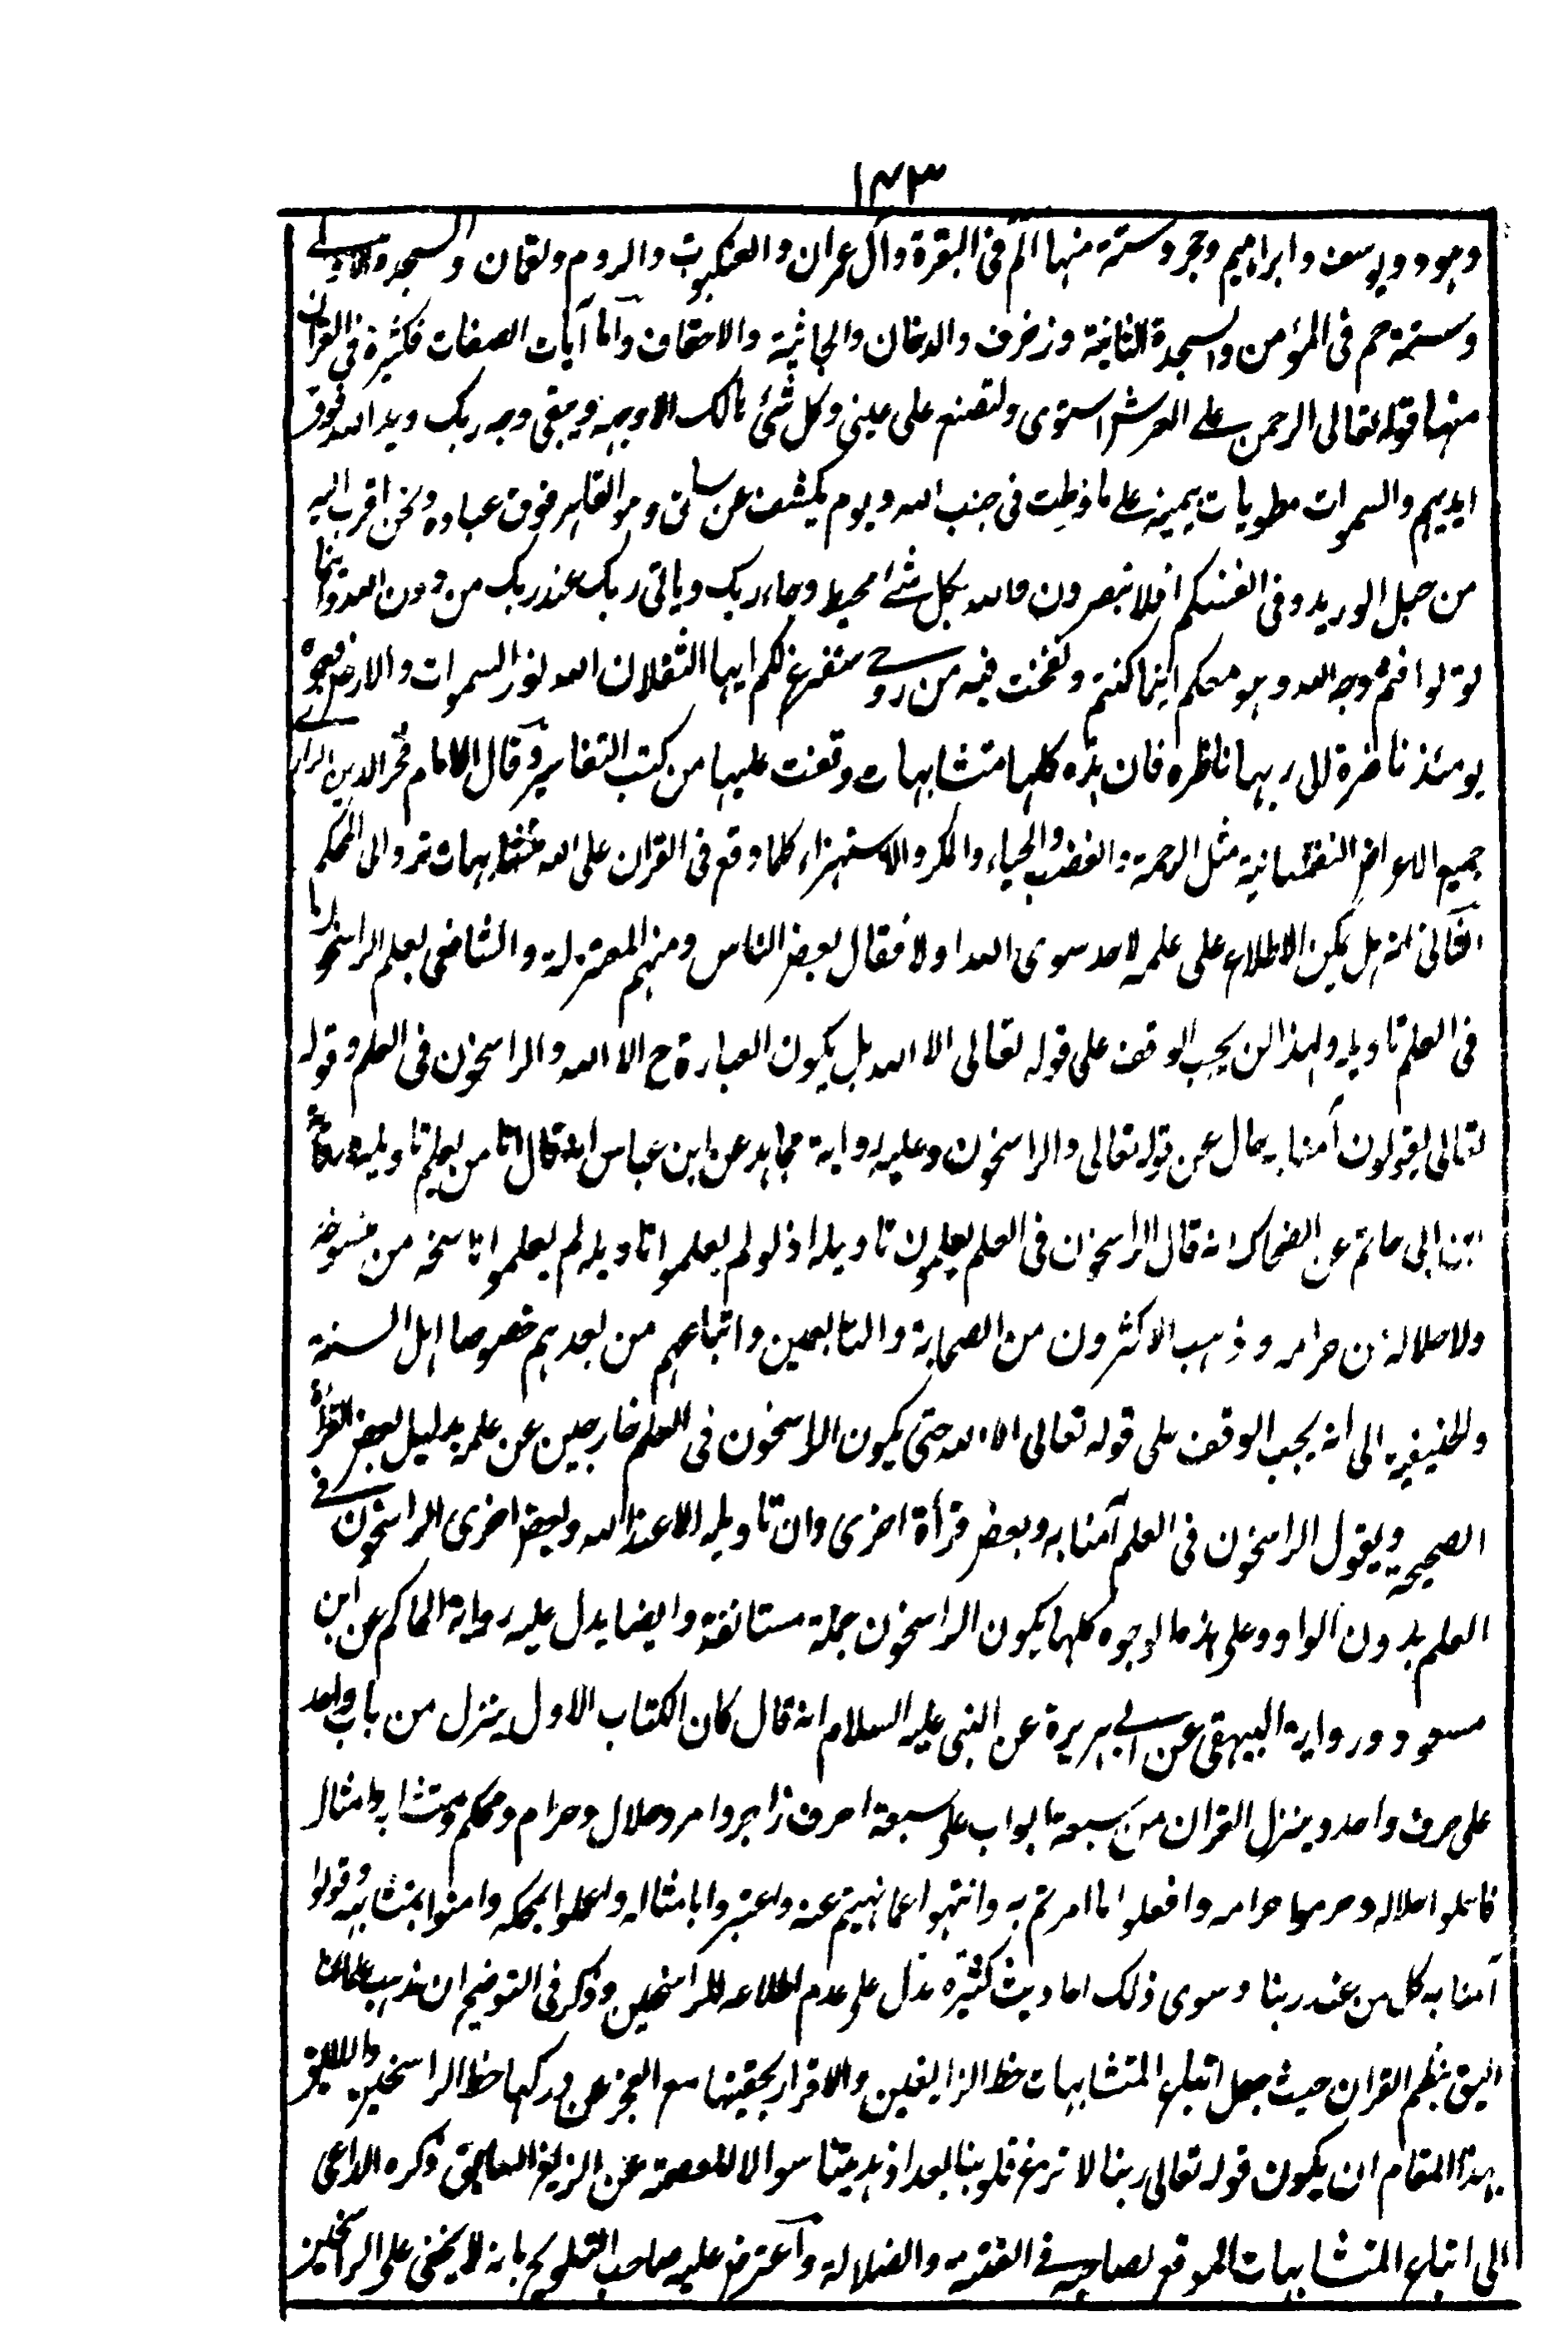 ١٤٣
وهود ويوسف وابراهيم وحجر وستة منها الم فى البقرة وآل عمران والعنكبوت والروم ولقمان والسجدة الاولى
وستة حم فى المؤمن والسجدة الثانية وزخرف والدخان والجاثية والاحقاف وآما آيات الصفات فكثيرة فى القران
منها قوله تعالى الرحمن على العرش استوى ولتصنع على عينى وكل شئ هالك الا وجهه ويبقى وجه ربك ويد الله فوق
ايديهم والسموات مطويات بيمينه على ما فرطت فى جنب الله ويوم يكشف عن ساق وهو القاهر فوق عباده ونحن اقرب اليه
من حبل الوريد وفى انفسكم افلا تبصرون والله بكل شئ محيط وجاء ربك وياتى ربك عند ربك من دون الله واينما
تولوا فثم وجه الله وهو معكم اينما كنتم ونفخت فيه من روحى سنفرغ لكم ايها الثقلان الله نور السموات والارض وجوه
يومئذ ناضرة الى ربها ناظره فان هذه كلها متشابهات وقفت عليها من كتب التفاسير وقال الامام فخر الدين الرازى
جميع الاعراض النفسانية مثل الرحمة والغضب والحياء والمكر والاستهزاء كلما وقع فى القران على الله متشابهات ترد الى المحكم
الثانى انه هل يمكن الاطلاع على علمه لاحد سوى الله اولا فقال بعض الناس ومنهم المعتزلة والشافعى يعلم الراسخون
فى العلم تاويله ولهذا لن يجب الوقف على قوله تعالى الا الله بل يكون العبارة ح الا الله والراسخون فى العلم وقوله
تعالى يقولون آمنا به حال عن قوله تعالى والراسخون وعليه رواية مجاهد عن ابن عباس انه قال انا من يعلم تاويله ورواية
ابن ابى حاتم عن الضحاك انه قال الراسخون فى العلم يعلمون تاويله اذ لو لم يعلموا تاويله لم يعلموا ناسخه من منسوخه
ولا حلاله من حرامه وذهب الاكثرون من الصحابة والتابعين واتباعهم من بعدهم خصوصا اهل السنة
والحنيفية الى انه يجب الوقف على قوله تعالى الا الله حتى يكون الراسخون فى العلم خارجين عن علمه بدليل بعض القراة
الصحيحة ويقول الراسخون فى العلم آمنا به وبعض قرأة اخرى وان تاويله الا عند الله وبعض اخرى الراسخون فى
العلم بدون الواو وعلى هذه الوجوه كلها يكون الراسخون جملة مستانفة وايضا يدل عليه رواية الحاكم عن ابن
مسعود ورواية البيهقى عن ابى هريرة عن النبى عليه السلام انه قال كان الكتاب الاول ينزل من باب واحد
على حرف واحد وينزل القران من سبعة ابواب على سبعة احرف زاجر وامر وحلال وحرام ومحكم ومتشابه وامثال
فاحلوا حلاله وحرموا حرامه وافعلوا ما امرتم به وانتهوا عما نهيتم عنه واعتبروا بامثاله واعملوا بمحكمه وامنوا بمتشابهه وقولوا
آمنا به كل من عند ربنا وسوى ذلك احاديث كثيرة تدل على عدم اطلاعه للراسخين وذكر فى التوضيح ان مذهب علمائنا
اليق بنظم القران حيث جعل اتباع المتشابهات حظ الزايغين والاقرار بحقيتها مع العجز عن دركها حظ الراسخين واللائق
بهذا المقام ان يكون قوله تعالى ربنا لا تزغ قلوبنا بعد اذ هديتنا سوالا للعصمة عن الزيغ السابق ذكره الداعى
الى اتباع المتشابهات الموقع لصاحبه فى الفتنة والضلالة وآعترض عليه صاحب التلويح بانه لا يخفى على الراسخين